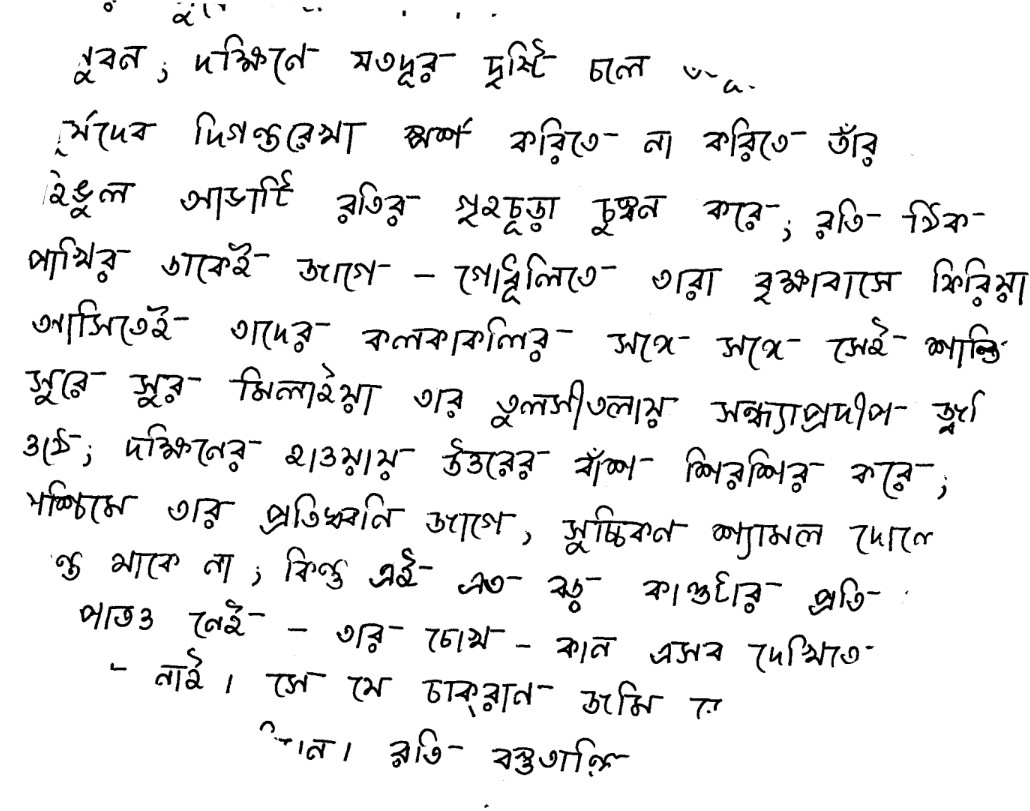 দক্ষিণে যতদূর দৃষ্টি চলে
দিগন্তরেখা স্পর্শ করিতে না করিতে তাঁর
আভাটি রতির গৃহচূড়া চুম্বন করে; রতি ঠিক
পাখির ডাকেই জাগে - গোধূলিতে তারা বৃক্ষাবাসে ফিরিয়া
আসিতেই তাদের কলকাকলির সঙ্গে সঙ্গে সেই
সুরে সুর মিলাইয়া তার তুলসীতলায় সন্ধ্যাপ্রদীপ
ওঠে; দক্ষিনের হাওয়ায় উত্তরের বাঁশ শিরশির করে;
তার প্রতিধ্বনি জাগে, সুচিক্কন শ্যামল
থাকে না; কিন্তু এই এত বড় কাণ্ডটার প্রতি
নেই - তার চোখ - কান এসব দেখিতে
নাই। সে যে চাক্‌রান জমি
রতি